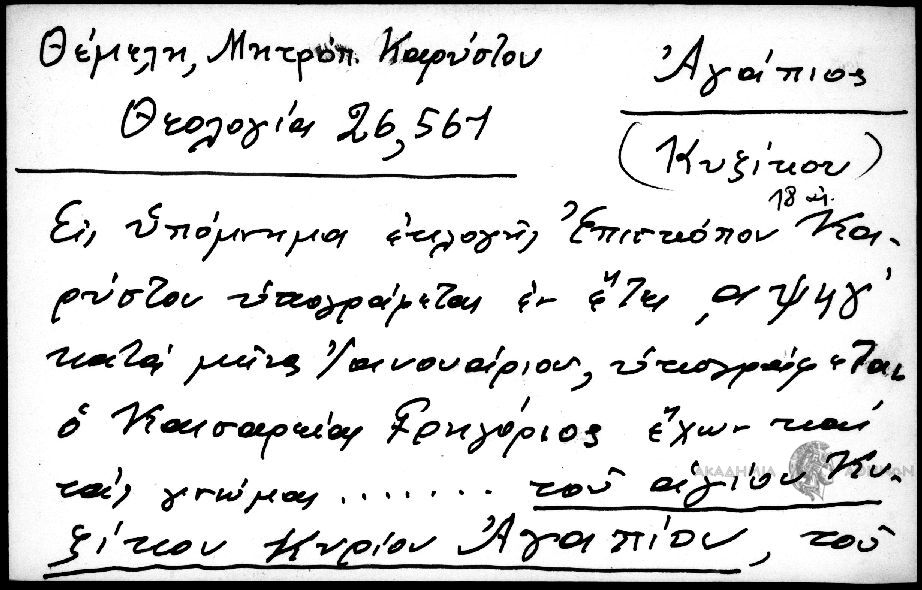 Θέμελη, Μητροπ. Καρύστου
Θεολογία 26,561
Ἀγάπιος
(Κυζίκου)
18 αἰ.
Εἰς ὑπόμνημα ἐκλογῆς Ἐπισκόπου Κα-
ρύστου ὑπογράφεται ἐν ἔτει ͵αψηγ΄
κατά μῆνα Ἰαννουάριον, ὑπογράφεται
ὁ Καισαρείας Γρηγόριος ἔχων καί
τάς γνώμας ....... τοῦ ἁγίου Κυ-
ζίκου Κυρίου Ἀγαπίου, τοῦ
ΑΚΑΔΗΜΙΑ ΑΘΗΝΩΝ